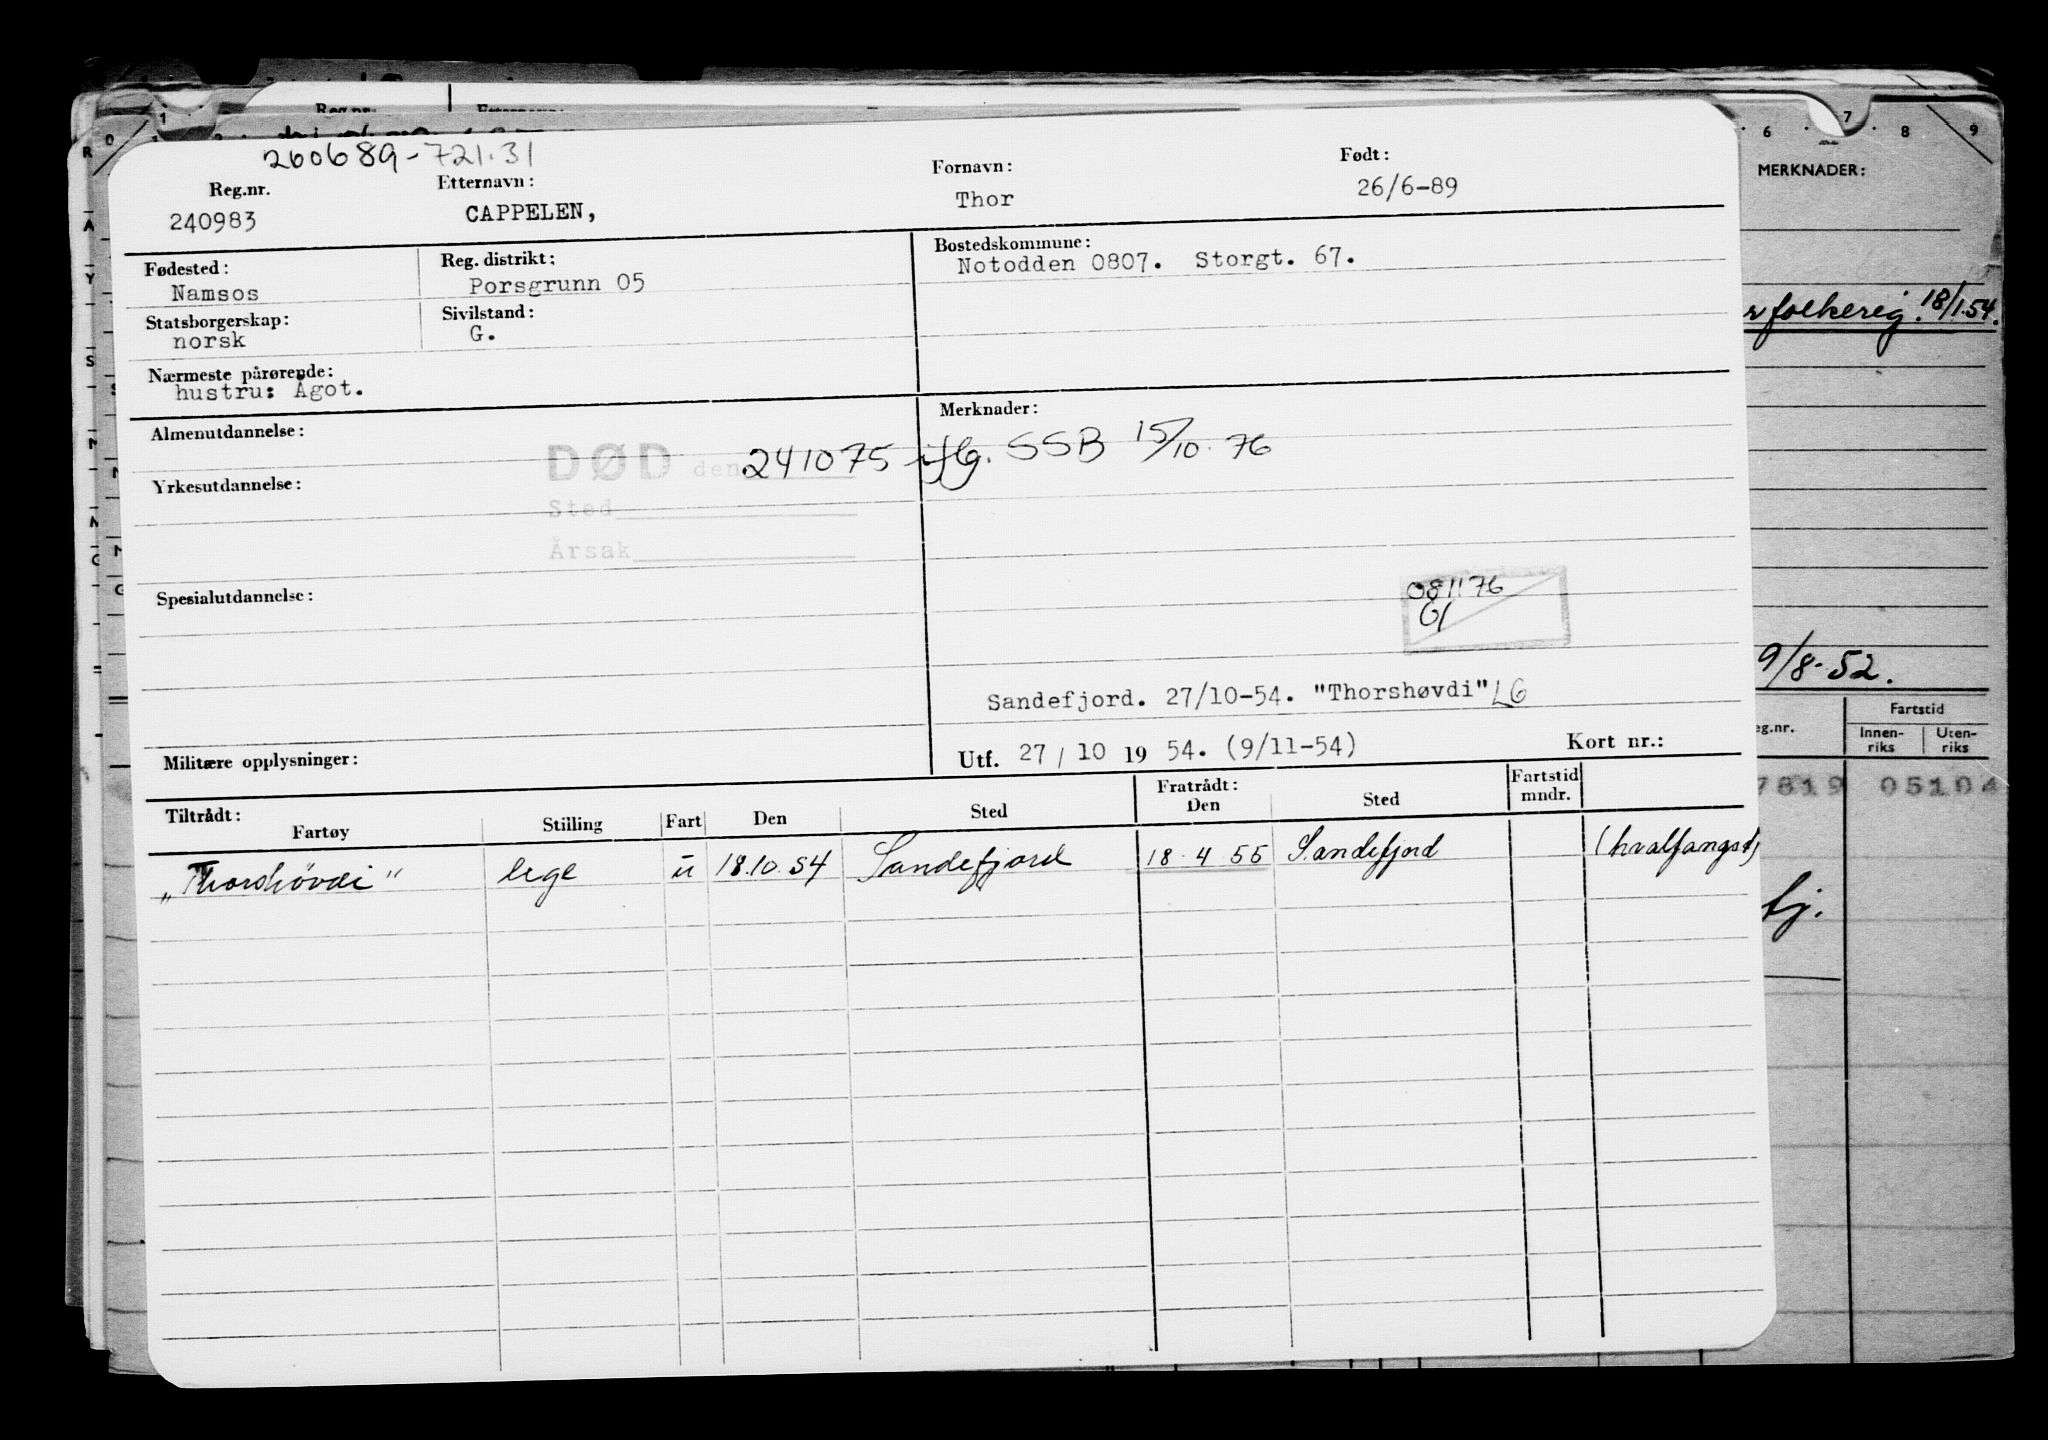 260689-721.31
Reg.nr. Etternavn: Fornavn: Født:
240983 CAPPELEN, Thor 26/6-89
Fødested: Reg. distrikt: Bostedskommune:
Namsos Porsgrunn 05 Notodden 0807. Storgt. 67.
Statsborgerskap: Sivilstand:
norsk G.
Nærmeste pårørende:
hustru: Ågot.
Almenutdannelse: Merknader:
DØD den 241075 ifg. SSB 15/10.76
Yrkesutdannelse:
Sted
Årsak
Spesialutdannelse:
081176
Sandefjord. 27/10-54. "Thorshøvdi" LG
Militære opplysninger: Utf. 27/10 19 54. (9/11-54) Kort nr.:
Tiltrådt: Fratrådt: Fartstid
Fartøy Stilling Fart Den Sted Den Sted mndr.
„Thorshövdi" lege u 18.10.54 Sandefjord 18.4 55 Sandefjord (hvalfangst)
0 1 6 7 8 9
Reg.nr. Etternavn:
MERKNADER:
folkereg. 18/1.54.
9/8-52.
Fartstid
eg.nr. Innen-riks Uten-riks
7819 05104
fj.